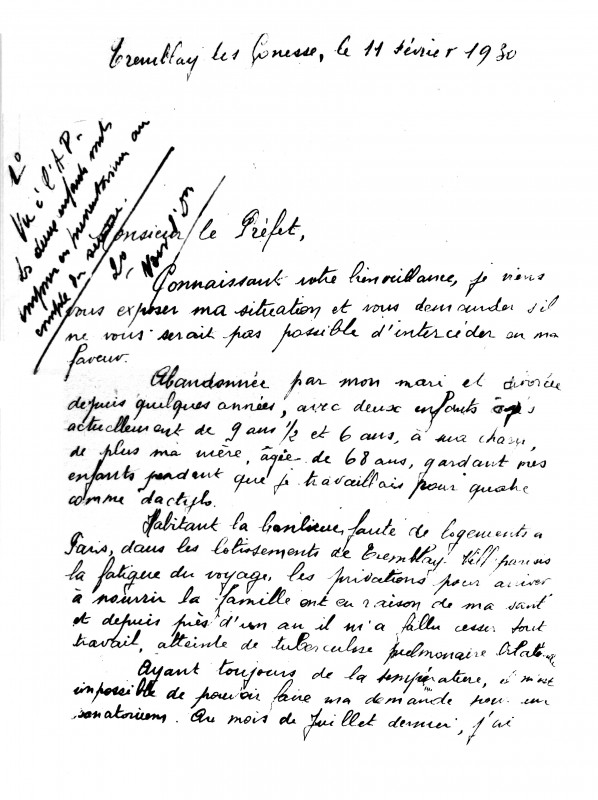 Tremblay les Gonesse, le 11 Février 1930
1º
Vu à l'AP.
Les deux enfants sont
en preventorium au
compte du
2º
Monsieur le Préfet,
Connaissant votre bienveillance, je viens
vous exposer ma situation et vous demander s'il
ne vous serait pas possible d'intercéder en ma
faveur.
Abandonnée par mon mari et divorcée
depuis quelques années, avec deux enfants âgés
actuellement de 9 ans 1/2 et 6 ans, à ma charge,
de plus ma mère, âgée de 68 ans, gardant mes
enfants pendant que je travaillais pour quatre
comme dactylo.
Habitant la banlieue faute de logements à
Paris, dans les lotissements de Tremblay.
la fatigue du voyage, les privations pour arriver
à nourrir la famille ont eu raison de ma santé
et depuis près d'un an il m'a fallu cesser tout
travail, atteinte de tuberculose pulmonaire bilatérale
Ayant toujours de la température, il m'est
impossible de pouvoir faire ma demande pour un
sanatorium. Au mois de Juillet dernier, j'ai